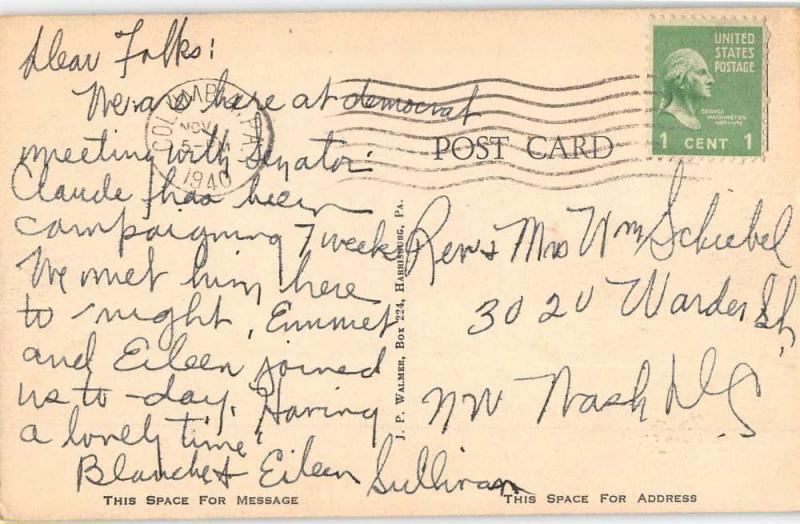 Dear Folks:
We are here at democrat
meeting with Senator
Claude has been
campaigning 7 weeks
We met him here
to-night, Emmet
and Eileen joined
us to-day. Having
a lovely time
Blanche & Eileen Sullivan
THIS SPACE FOR MESSAGE
COLUMBIA, PA.
NOV
1940
POST CARD
J. P. WALMER, BOX 224, HARRISBURG, PA.
UNITED
STATES
POSTAGE
GEORGE
WASHINGTON
1 CENT 1
Rev & Mrs Wm Schiebel
3020 Warder St,
NW Wash DC
THIS SPACE FOR ADDRESS